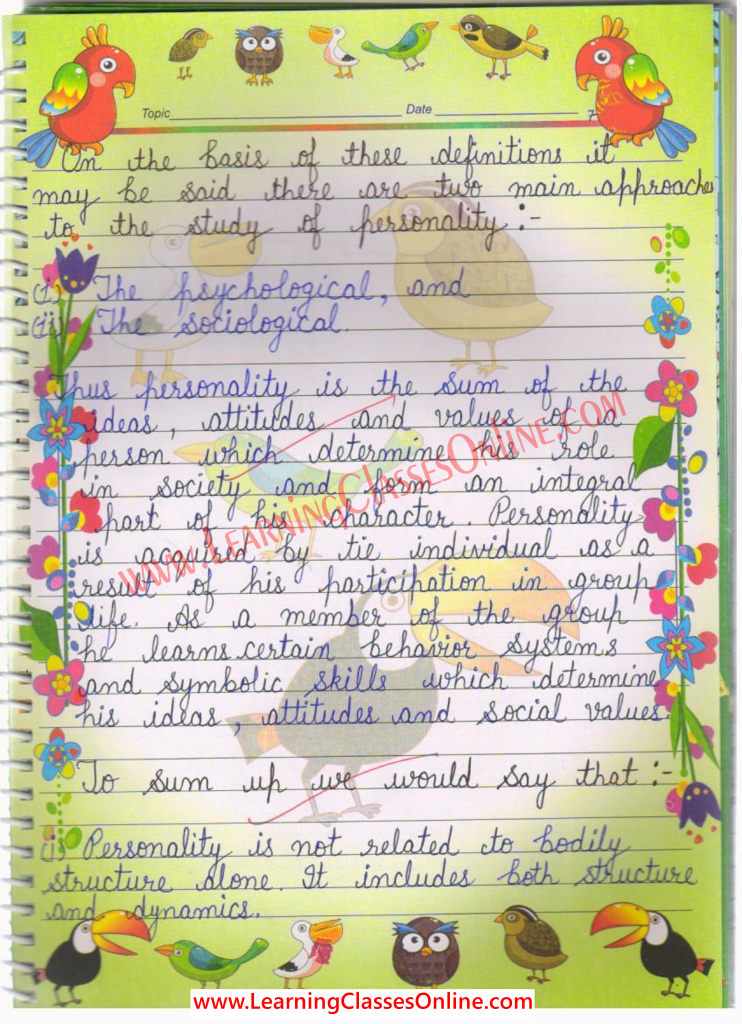 Topic Date 7
On the basis of these definitions it
may be said there are two main approaches
to the study of personality :-
(i) The psychological, and
(ii) The sociological.
Thus personality is the sum of the
ideas, attitudes and values of a
person which determine his role
in society and form an integral
part of his character. Personality
is acquired by tie individual as a
result of his participation in group
life. As a member of the group
he learns certain behavior systems
and symbolic skills which determine
his ideas, attitudes and social values.
To sum up we would say that :-
(i) Personality is not related to bodily
structure alone. It includes both structure
and dynamics.
www.LearningClassesOnline.com
www.LearningClassesOnline.com